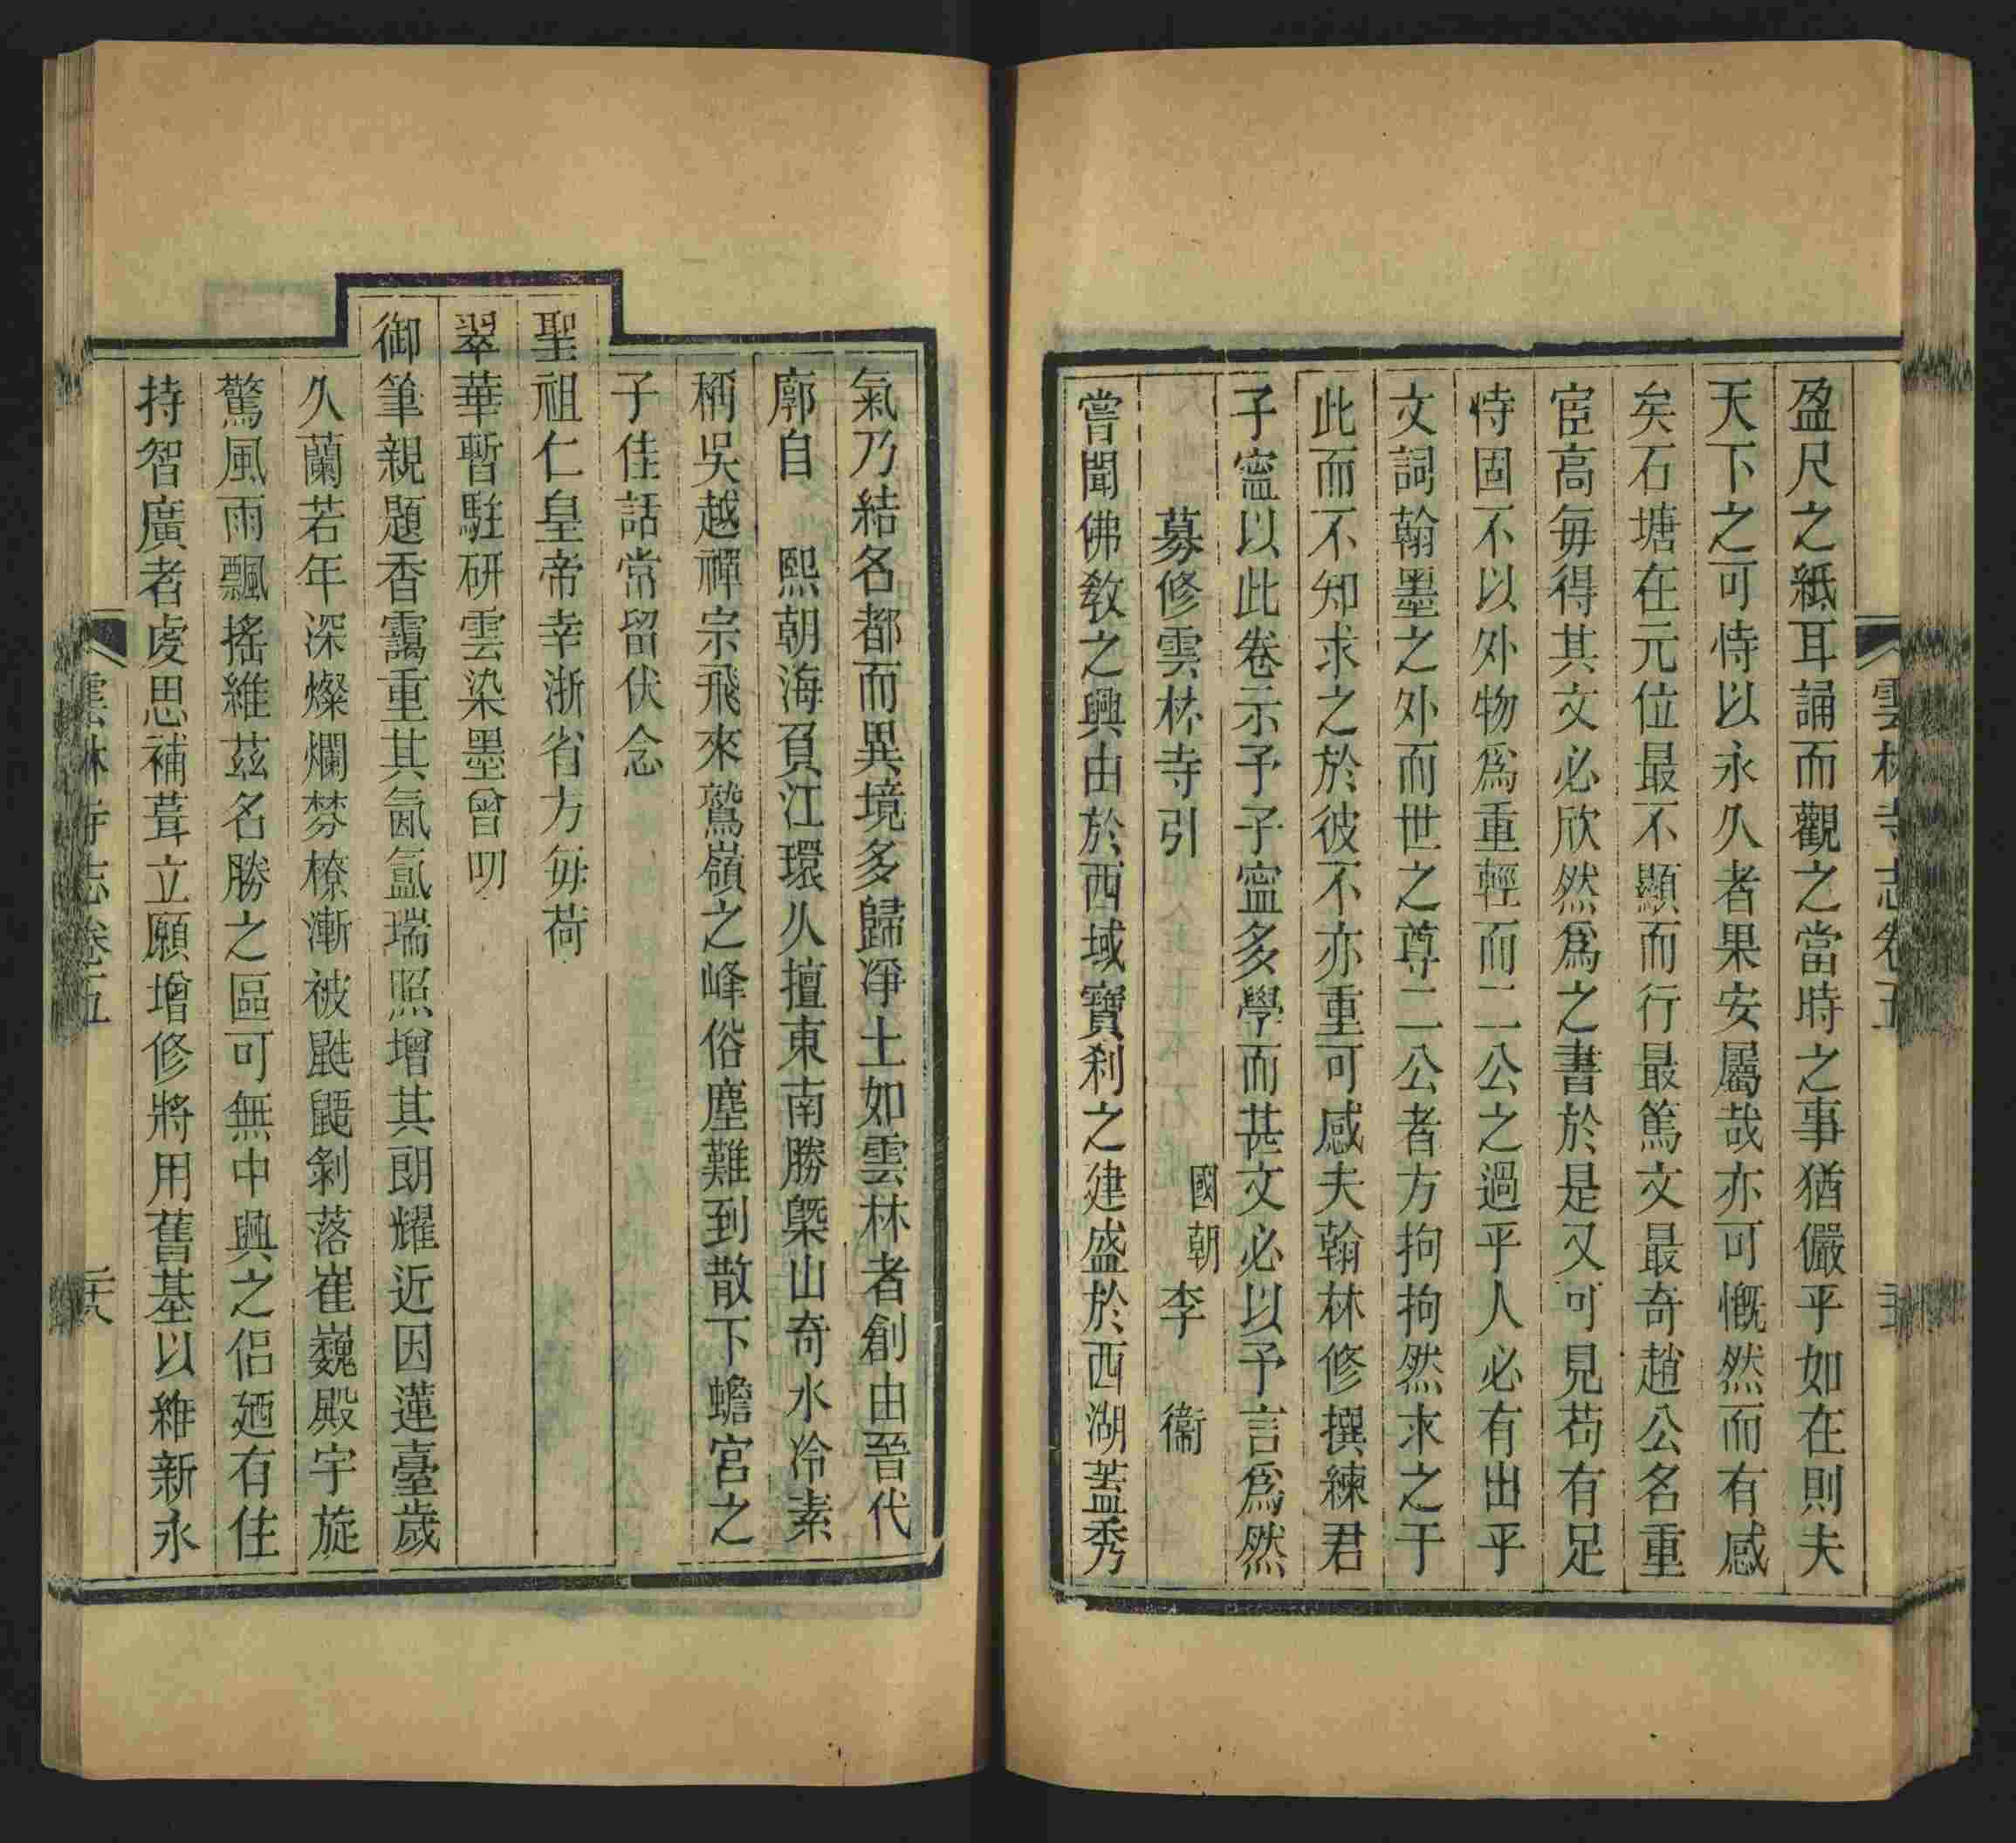 雲林寺志卷五
盈尺之紙耳誦而觀之當時之事猶儼乎如在則夫
天下之可恃以永久者果安屬哉亦可慨然而有感
矣石塘在元位最不顯而行最篤文最奇趙公名重
宦高毎得其文必欣然爲之書於是又可見苟有足
恃固不以外物爲重輕而二公之過乎人必有出乎
文詞翰墨之外而世之尊二公者方拘拘然求之于
此而不知求之於彼不亦重可感夫翰林修撰練君
子寧以此卷示予子寧多學而甚文必以予言爲然
募修雲林寺引 國朝 李 衞
嘗聞佛敎之興由於西域寶刹之建盛於西湖葢秀
氣乃結名都而異境多歸凈土如雲林者創由晉代
廓自 熙朝海負江環久擅東南勝槩山奇水冷素
稱吳越禪宗飛來鷲嶺之峰俗塵難到散下蟾宮之
子佳話常留伏念
聖祖仁皇帝幸浙省方毎荷
翠華暫駐硏雲染墨曾叨
御筆親題香靄重其氤氲瑞照增其朗耀近因蓮臺歲
久蘭若年深燦爛棼橑漸被鼪鼯剝落崔巍殿宇旋
驚風雨飄搖維茲名勝之區可無中興之侶廼有住
持智廣者虔思補葺立願增修將用舊基以維新永
雲林寺志卷五 二十八